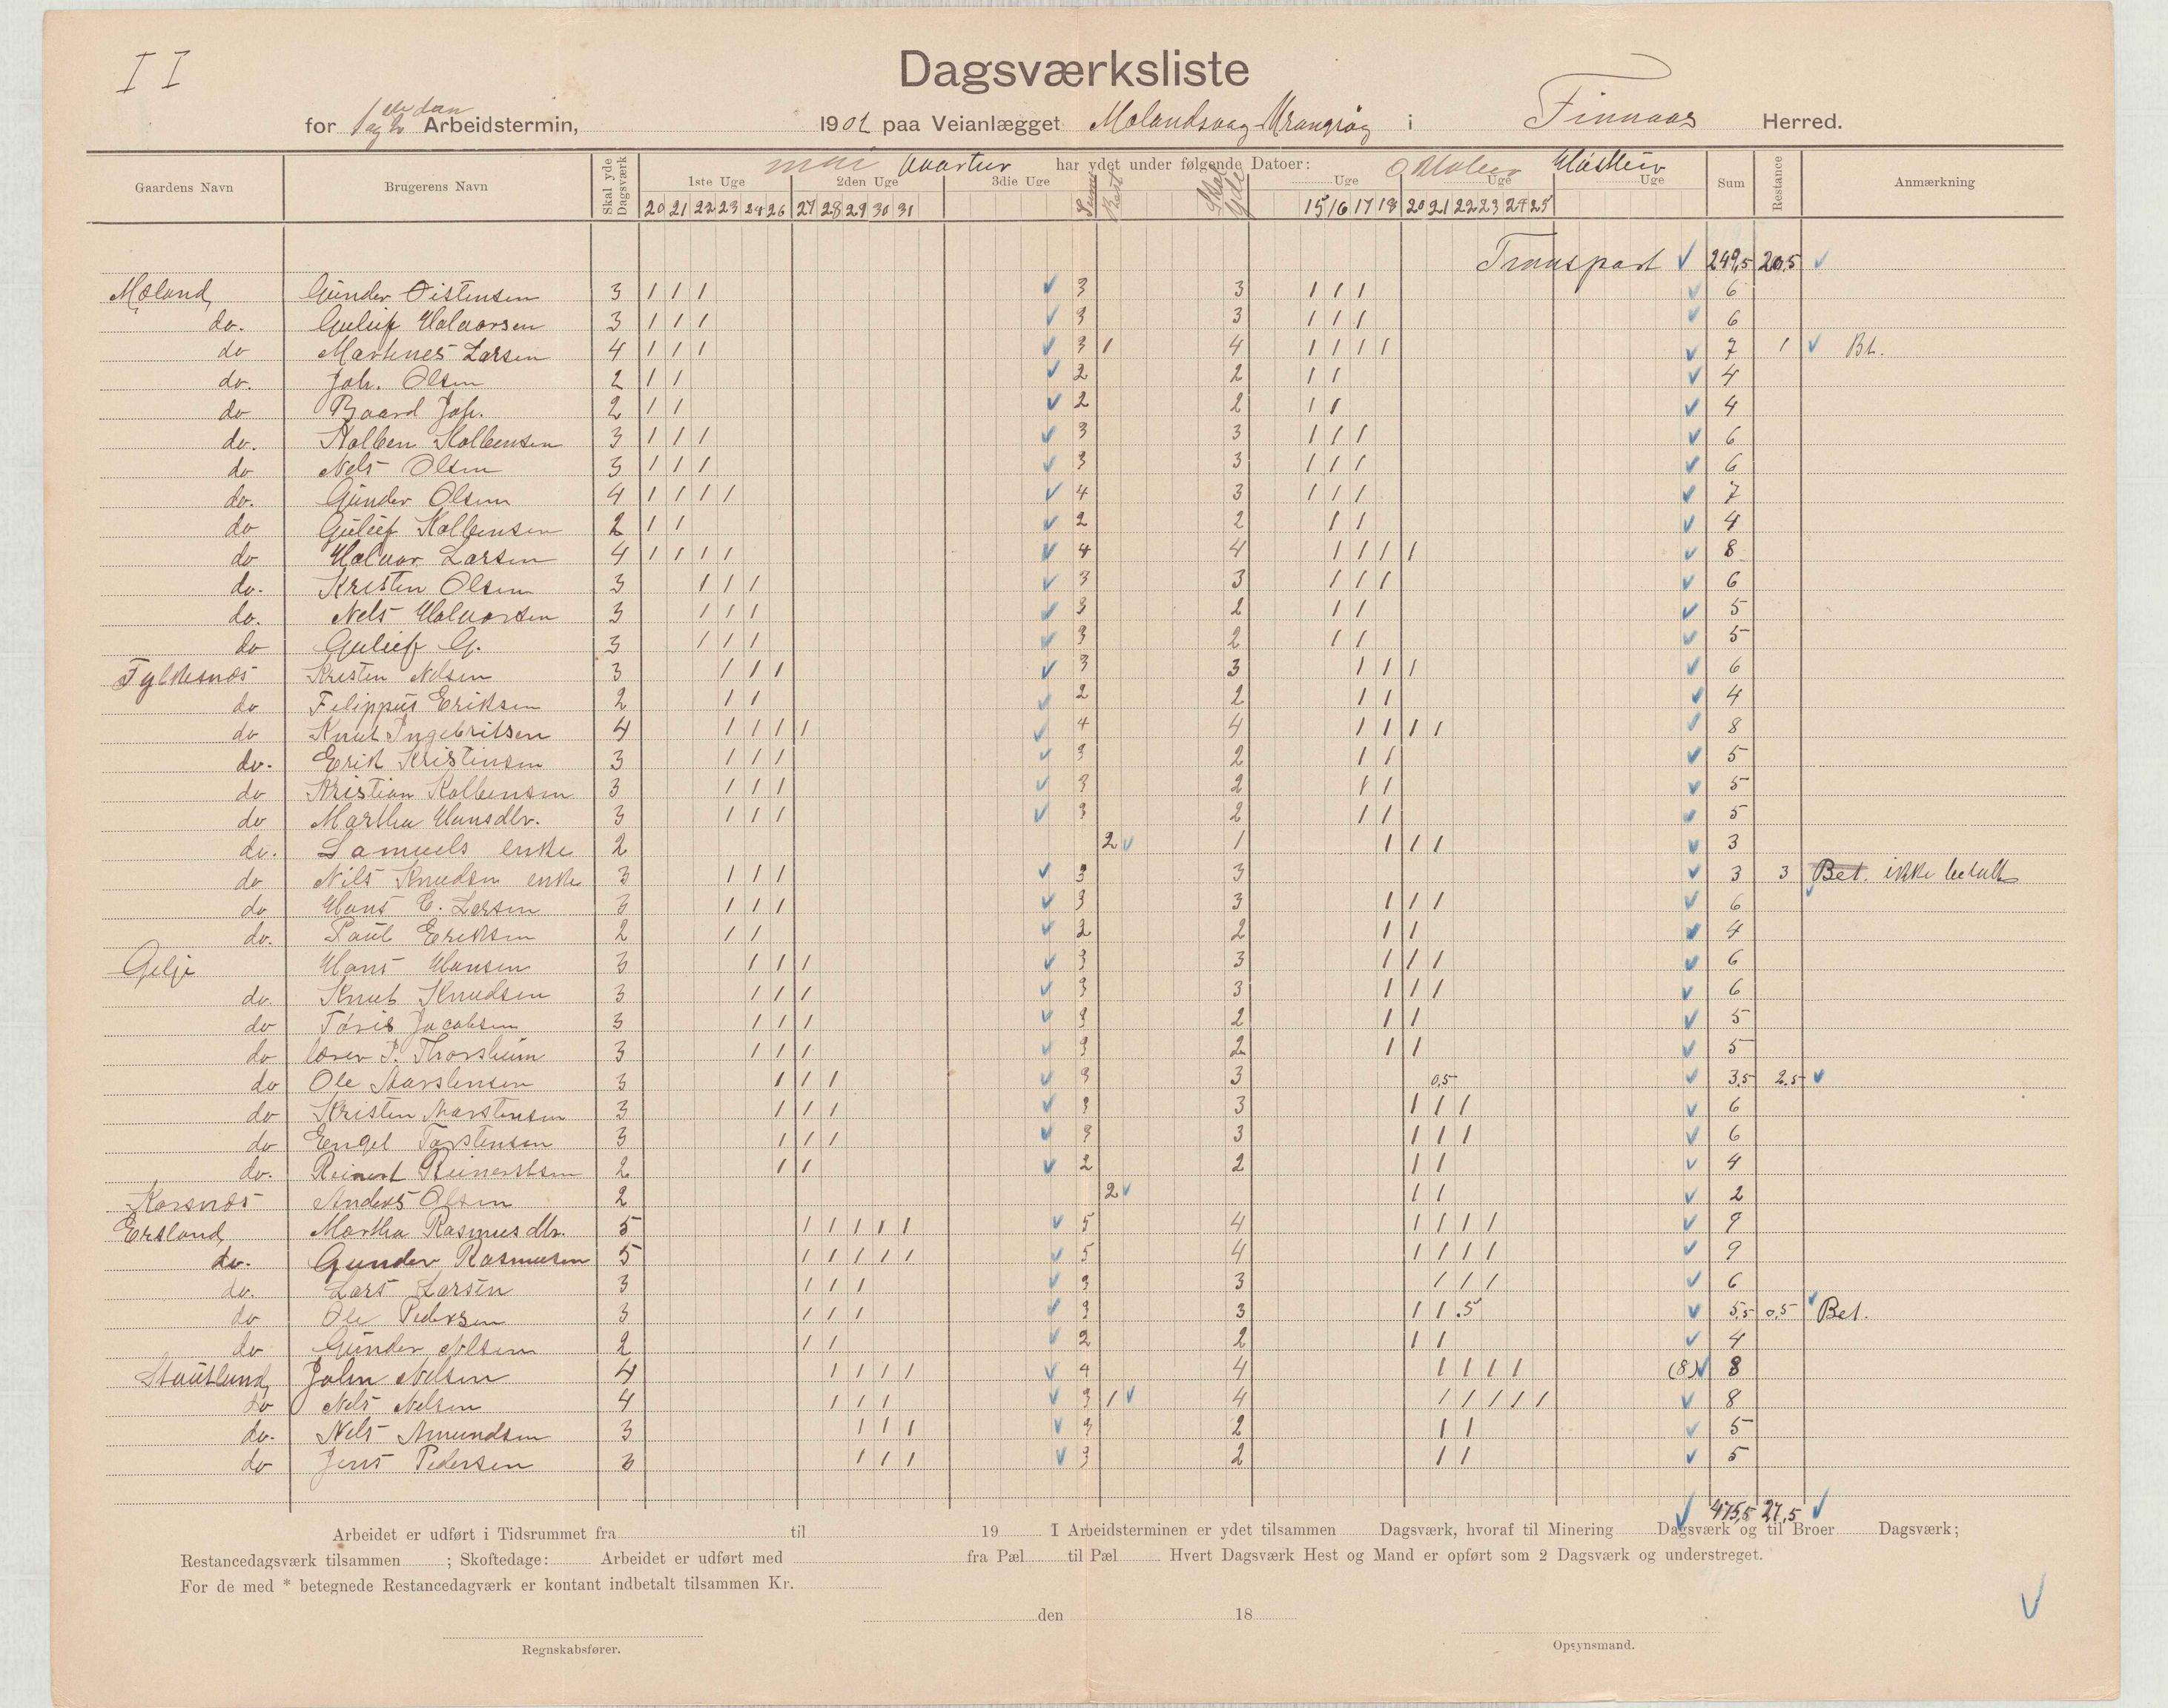 II
Dagsværksliste
for 1ste og 2den Arbeidstermin, 1902 paa Veianlægget Mølandsvaag-Vrangvåg i Finnaas Herred.
Gaardens Navn Brugerens Navn Skal yde Dagsværk mai Vaartur har ydet under følgende Datoer: Oktober Høsttur Sum Restance Anmærkning
1ste Uge 2den Uge 3die Uge Sum Rest Skal yde Uge Uge Uge
20 21 22 23 24 26 27 28 29 30 31 15 16 17 18 20 21 22 23 24 25
Transport 249,5 20,5
Møland Gunder Oistensen 3 1 1 1 3 3 1 1 1 6
do. Guleif Halvorsen 3 1 1 1 3 3 1 1 1 6
do Martines Larsen 4 1 1 1 3 1 4 1 1 1 1 7 1 Bt.
do. Joh. Olsen 2 1 1 2 2 1 1 4
do Baard Joh. 2 1 1 2 2 1 1 4
do. Kolben Kolbensen 3 1 1 1 3 3 1 1 1 6
do Nels Olsen 3 1 1 1 3 3 1 1 1 6
do. Gunder Olsen 4 1 1 1 1 4 3 1 1 1 7
do Guleif Kolbensen 2 1 1 2 2 1 1 4
do Halvor Larsen 4 1 1 1 1 4 4 1 1 1 1 8
do. Kristen Olsen 3 1 1 1 3 3 1 1 1 6
do. Nels Halvorsen 3 1 1 1 3 2 1 1 5
do Guleif G. 3 1 1 1 3 2 1 1 5
Fylkesnes Kristen Nelsen 3 1 1 1 3 3 1 1 1 6
do Filippus Eriksen 2 1 1 2 2 1 1 4
do Knut Ingebritsen 4 1 1 1 1 4 4 1 1 1 1 8
do. Erik Kristensen 3 1 1 1 3 2 1 1 5
do Kristian Kolbensen 3 1 1 1 3 2 1 1 5
do Martha Hansdtr. 3 1 1 1 3 2 1 1 5
do. Samuels enke 2 2 1 1 1 1 3
do Nils Knudsen enke 3 1 1 1 3 3 3 3 Bet. ikke betalt
do Hans E. Larsen 3 1 1 1 3 3 1 1 1 6
do. Paul Eriksen 2 1 1 2 2 1 1 4
Gilje Hans Hansen 3 1 1 1 3 3 1 1 1 6
do. Knut Knudsen 3 1 1 1 3 3 1 1 1 6
do Tøris Jacobsen 3 1 1 1 3 2 1 1 5
do lærer P. Thorsheim 3 1 1 1 3 2 1 1 5
do Ole Marstensen 3 1 1 1 3 3 0,5 3,5 2,5
do Kristen Marstensen 3 1 1 1 3 3 1 1 1 6
do Engel Torstensen 3 1 1 1 3 3 1 1 1 6
do. Reinert Reinertsen 2 1 1 2 2 1 1 4
Korsnes Anders Olsen 2 2 1 1 2
Ersland Martha Rasmusdtr. 5 1 1 1 1 1 5 4 1 1 1 1 9
do. Gunder Rasmusen 5 1 1 1 1 1 5 4 1 1 1 1 9
do. Lars Larsen 3 1 1 1 3 3 1 1 1 6
do Ole Pedersen 3 1 1 1 3 3 1 1 .5 5,5 0,5 Bet.
do Gunder Nelsen 2 1 1 2 2 1 1 4
Stautland John Nelsen 4 1 1 1 1 4 4 1 1 1 1 (8) 8
do Nels Nelsen 4 1 1 1 3 1 4 1 1 1 1 1 8
do. Nels Amundsen 3 1 1 1 3 2 1 1 5
do Jens Pedersen 3 1 1 1 3 2 1 1 5
475,5 27,5
Arbeidet er udført i Tidsrummet fra til 19 I Arbeidsterminen er ydet tilsammen Dagsværk, hvoraf til Minering Dagsværk og til Broer Dagsværk;
Restancedagsværk tilsammen ; Skoftedage: Arbeidet er udført med fra Pæl til Pæl Hvert Dagsværk Hest og Mand er opført som 2 Dagsværk og understreget.
For de med * betegnede Restancedagværk er kontant indbetalt tilsammen Kr.
den 18
Regnskabsfører. Opsynsmand.